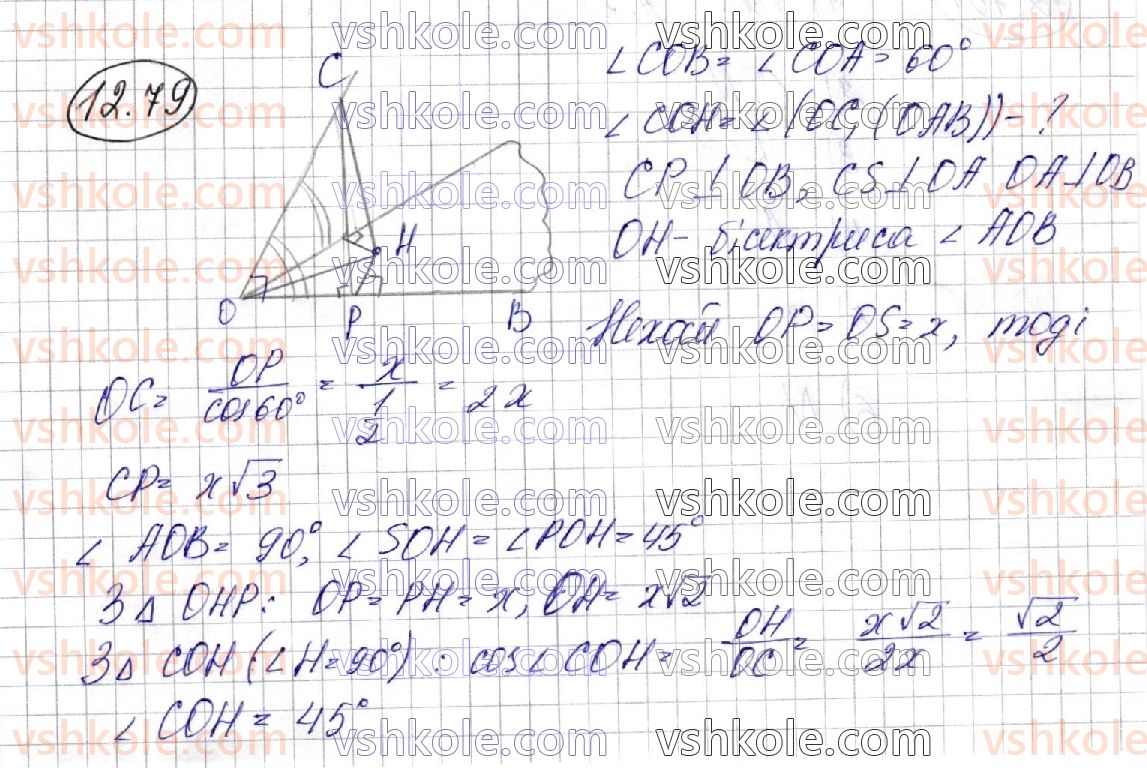 12.79
C
H
O
P
B
∠COB = ∠COA = 60°
∠COH = ∠(OC, (OAB)) - ?
CP ⊥ OB, CS ⊥ OA OA ⊥ OB
OH - бісектриса ∠ AOB
Нехай OP = OS = x, тоді
OC = OP/cos60° = x/(1/2) = 2x
CP = x√3
∠ AOB = 90°, ∠ SOH = ∠POH = 45°
З Δ OHP: OP = PH = x, OH = x√2
З Δ COH (∠H = 90°): cos∠COH = OH/OC = x√2/2x = √2/2
∠ COH = 45°
vshkole.com